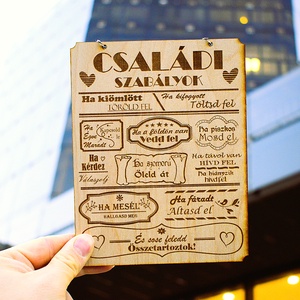 CSALÁDI
SZABÁLYOK
Ha kiömlött
TÖRÖLD FEL
Ha kifogyott
Töltsd fel
Ha
Egyet
Maradt
Ha a földön van
Vedd fel
Ha piszkos
Mosd el
Ha
Kérdez
Válaszolj
Ha szomorú
Öleld át
Ha távol van
HÍVD FEL
Ha hiányzik
hívd fel
HA MESÉL
HALLGASD MEG
Ha fáradt
Altasd el
És sose feledd
Összetartoztok!